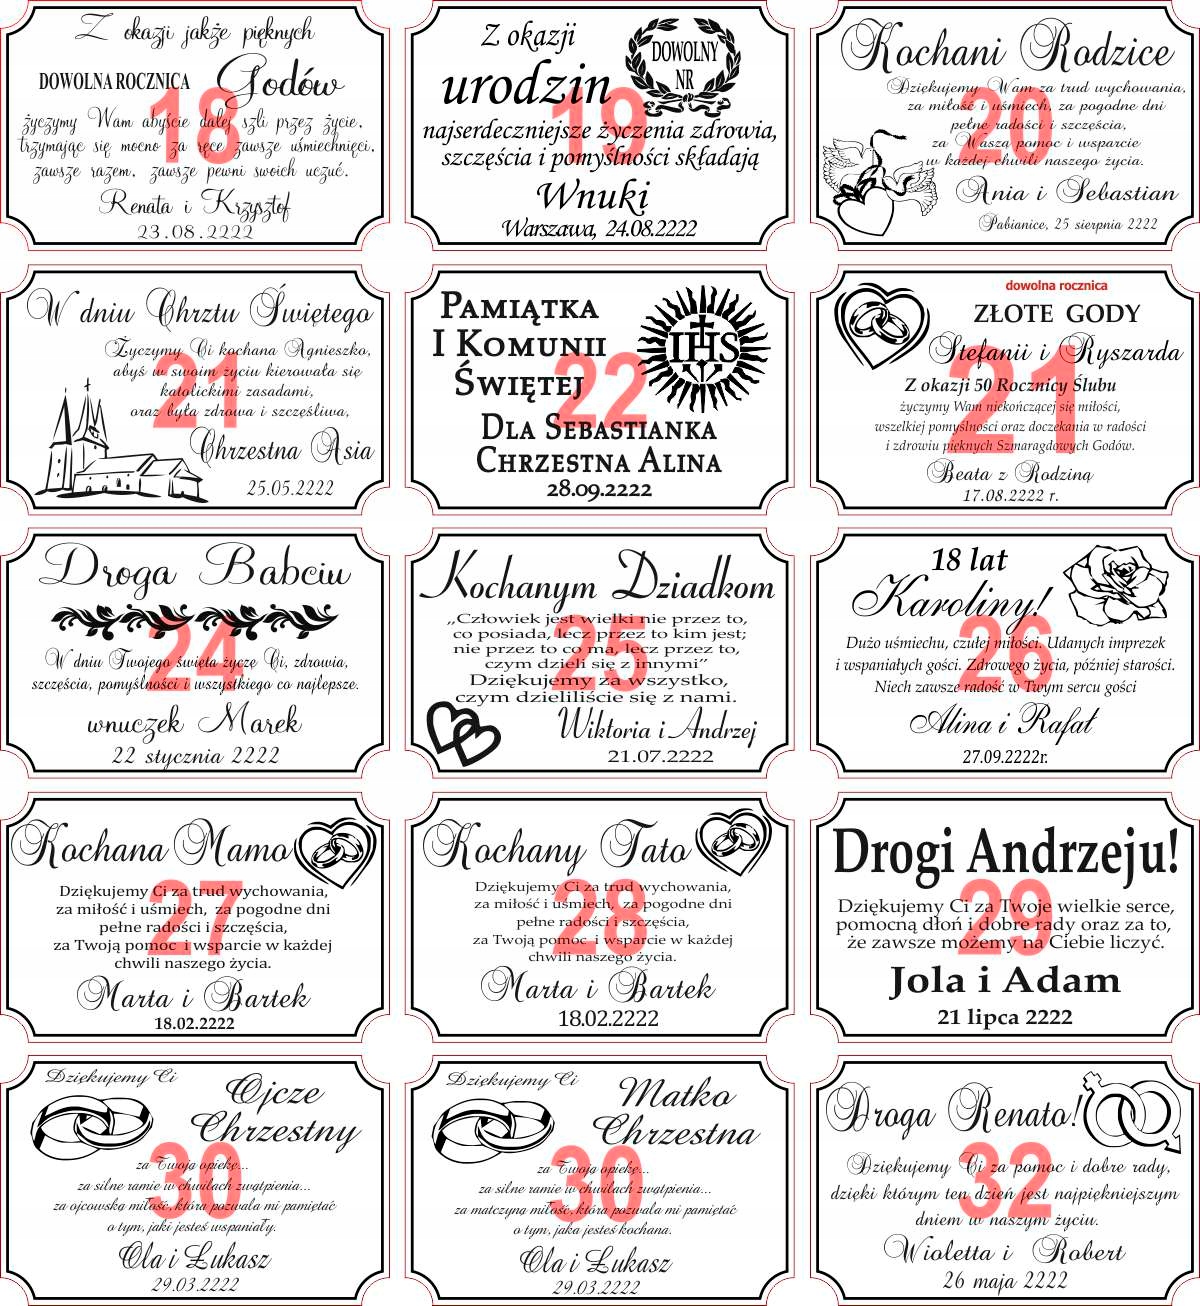 Z okazji jakże pięknych
DOWOLNA ROCZNICA Godów
życzymy Wam abyście dalej szli przez życie,
trzymając się mocno za ręce zawsze uśmiechnięci,
zawsze razem, zawsze pewni swoich uczuć.
Renata i Krzysztof
23.08.2222
18
Z okazji
DOWOLNY
NR
urodzin
najserdeczniejsze życzenia zdrowia,
szczęścia i pomyślności składają
Wnuki
Warszawa, 24.08.2222
19
Kochani Rodzice
Dziękujemy Wam za trud wychowania,
za miłość i uśmiech, za pogodne dni
pełne radości i szczęścia,
za Waszą pomoc i wsparcie
w każdej chwili naszego życia.
Ania i Sebastian
Pabianice, 25 sierpnia 2222
20
W dniu Chrztu Świętego
Życzymy Ci kochana Agnieszko,
abyś w swoim życiu kierowała się
katolickimi zasadami,
oraz była zdrowa i szczęśliwa,
Chrzestna Asia
25.05.2222
21
PAMIĄTKA
I KOMUNII
ŚWIĘTEJ
IHS
DLA SEBASTIANKA
CHRZESTNA ALINA
28.09.2222
22
dowolna rocznica
ZŁOTE GODY
Stefanii i Ryszarda
Z okazji 50 Rocznicy Ślubu
życzymy Wam niekończącej się miłości,
wszelkiej pomyślności oraz doczekania w radości
i zdrowiu pięknych Szmaragdowych Godów.
Beata z Rodziną
17.08.2222 r.
21
Droga Babciu
W dniu Twojego święta życzę Ci, zdrowia,
szczęścia, pomyślności i wszystkiego co najlepsze.
wnuczek Marek
22 stycznia 2222
24
Kochanym Dziadkom
„Człowiek jest wielki nie przez to,
co posiada, lecz przez to kim jest;
nie przez to co ma, lecz przez to,
czym dzieli się z innymi”
Dziękujemy za wszystko,
czym dzieliliście się z nami.
Wiktoria i Andrzej
21.07.2222
25
18 lat
Karoliny!
Dużo uśmiechu, czułej miłości. Udanych imprezek
i wspaniałych gości. Zdrowego życia, później starości.
Niech zawsze radość w Twym sercu gości
Alina i Rafał
27.09.2222r.
26
Kochana Mamo
Dziękujemy Ci za trud wychowania,
za miłość i uśmiech, za pogodne dni
pełne radości i szczęścia,
za Twoją pomoc i wsparcie w każdej
chwili naszego życia.
Marta i Bartek
18.02.2222
27
Kochany Tato
Dziękujemy Ci za trud wychowania,
za miłość i uśmiech, za pogodne dni
pełne radości i szczęścia,
za Twoją pomoc i wsparcie w każdej
chwili naszego życia.
Marta i Bartek
18.02.2222
28
Drogi Andrzeju!
Dziękujemy Ci za Twoje wielkie serce,
pomocną dłoń i dobre rady oraz za to,
że zawsze możemy na Ciebie liczyć.
Jola i Adam
21 lipca 2222
29
Dziękujemy Ci
Ojcze
Chrzestny
za Twoją opiekę...
za silne ramie w chwilach zwątpienia...
za ojcowską miłość, która pozwala mi pamiętać
o tym, jaki jesteś wspaniały.
Ola i Łukasz
29.03.2222
30
Dziękujemy Ci
Matko
Chrzestna
za Twoją opiekę...
za silne ramie w chwilach zwątpienia...
za matczyną miłość, która pozwala mi pamiętać
o tym, jaka jesteś kochana.
Ola i Łukasz
29.03.2222
30
Droga Renato!
Dziękujemy Ci za pomoc i dobre rady,
dzięki którym ten dzień jest najpiękniejszym
dniem w naszym życiu.
Wioletta i Robert
26 maja 2222
32